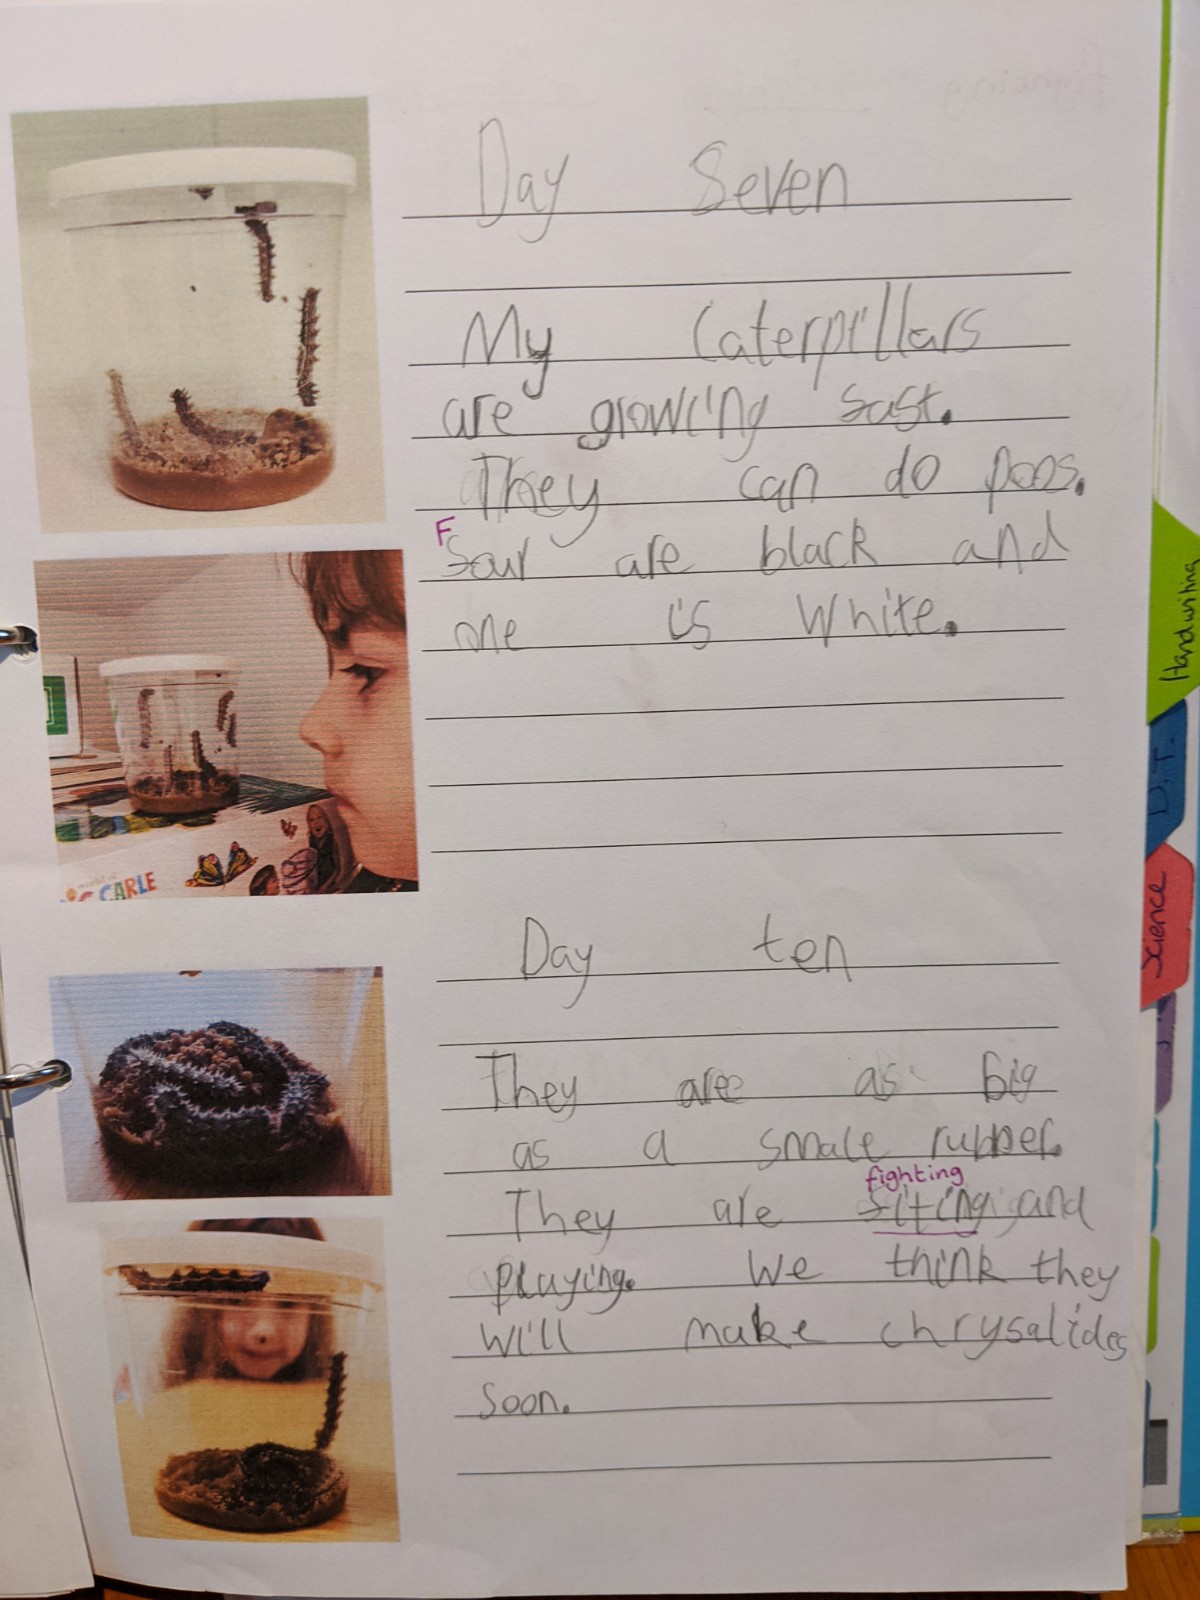 Day Seven
My Caterpillars
are growing sast.
They can do poos.
F
Sour are black and
one is white.
CARLE
Day ten
They are as big
as a smale rubber.
fighting
They are siting and
playing. We think they
will make chrysalides
soon.
Handwriting
D.T.
Science